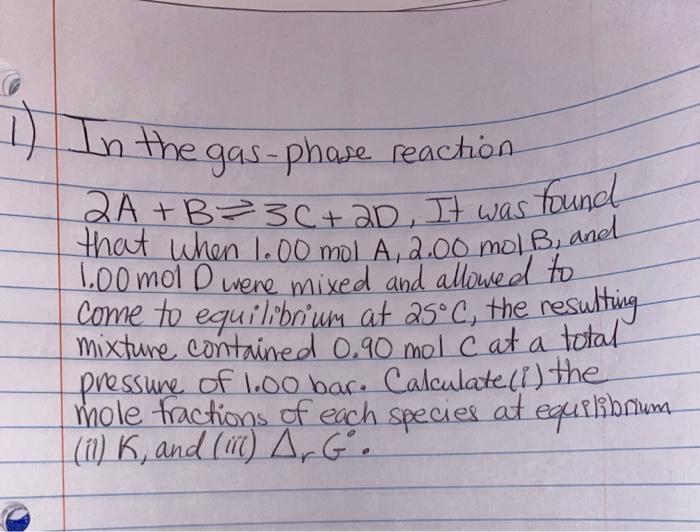 1) In the gas-phase reaction
2A + B ⇌ 3C + 2D, It was found
that when 1.00 mol A, 2.00 mol B, and
1.00 mol D were mixed and allowed to
come to equilibrium at 25°C, the resulting
mixture contained 0.90 mol C at a total
pressure of 1.00 bar. Calculate (i) the
mole fractions of each species at equilibrium
(ii) K, and (iii) ΔrG°.